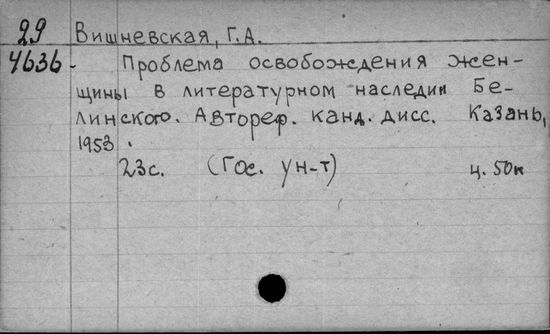 29 Вишневская, Г.А.
4636- Проблема освобождения жен-
щины в литературном наследии Бе-
линского. Автореф. канд. дисс. Казань,
1953.
23с. (Гос. ун-т) ц. 50к